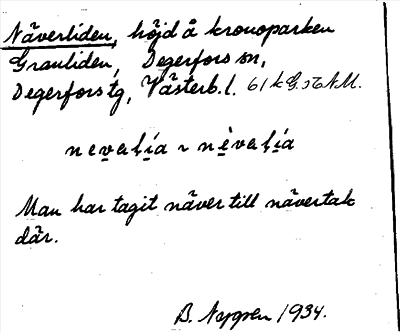 Näverliden, höjd å kronoparken
Granliden, Degerfors sn,
Degerfors tg, Västerb. l.
nevalía ~ nèvalía
Man har tagit näver till nävertak
där.
B. Nygren 1934.